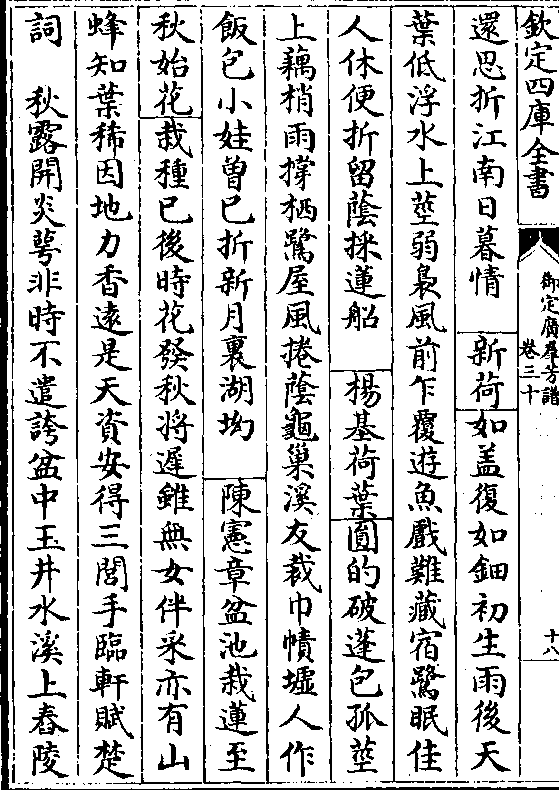 欽定四庫全書
御定廣羣芳譜
卷三十
十八
還思折江南日暮情　新荷如盖復如鈿初生雨後天
葉低浮水上莖弱裊風前乍覆遊魚戲難藏宿鷺眠佳
人休便折留蔭採蓮船　楊基荷葉圓的破蓬包孤莖
上藕梢雨撑栖鷺屋風捲蔭龜巢溪友裁巾幘墟人作
飯包小娃曽已折新月裏湖坳　陳憲章盆池栽蓮至
秋始花栽種已後時花發秋将遲雖無女伴采亦有山
蜂知葉稀因地力香逺是天資安得三閭手臨軒賦楚
詞　秋露開炎萼非時不遣誇盆中玉井水溪上舂陵